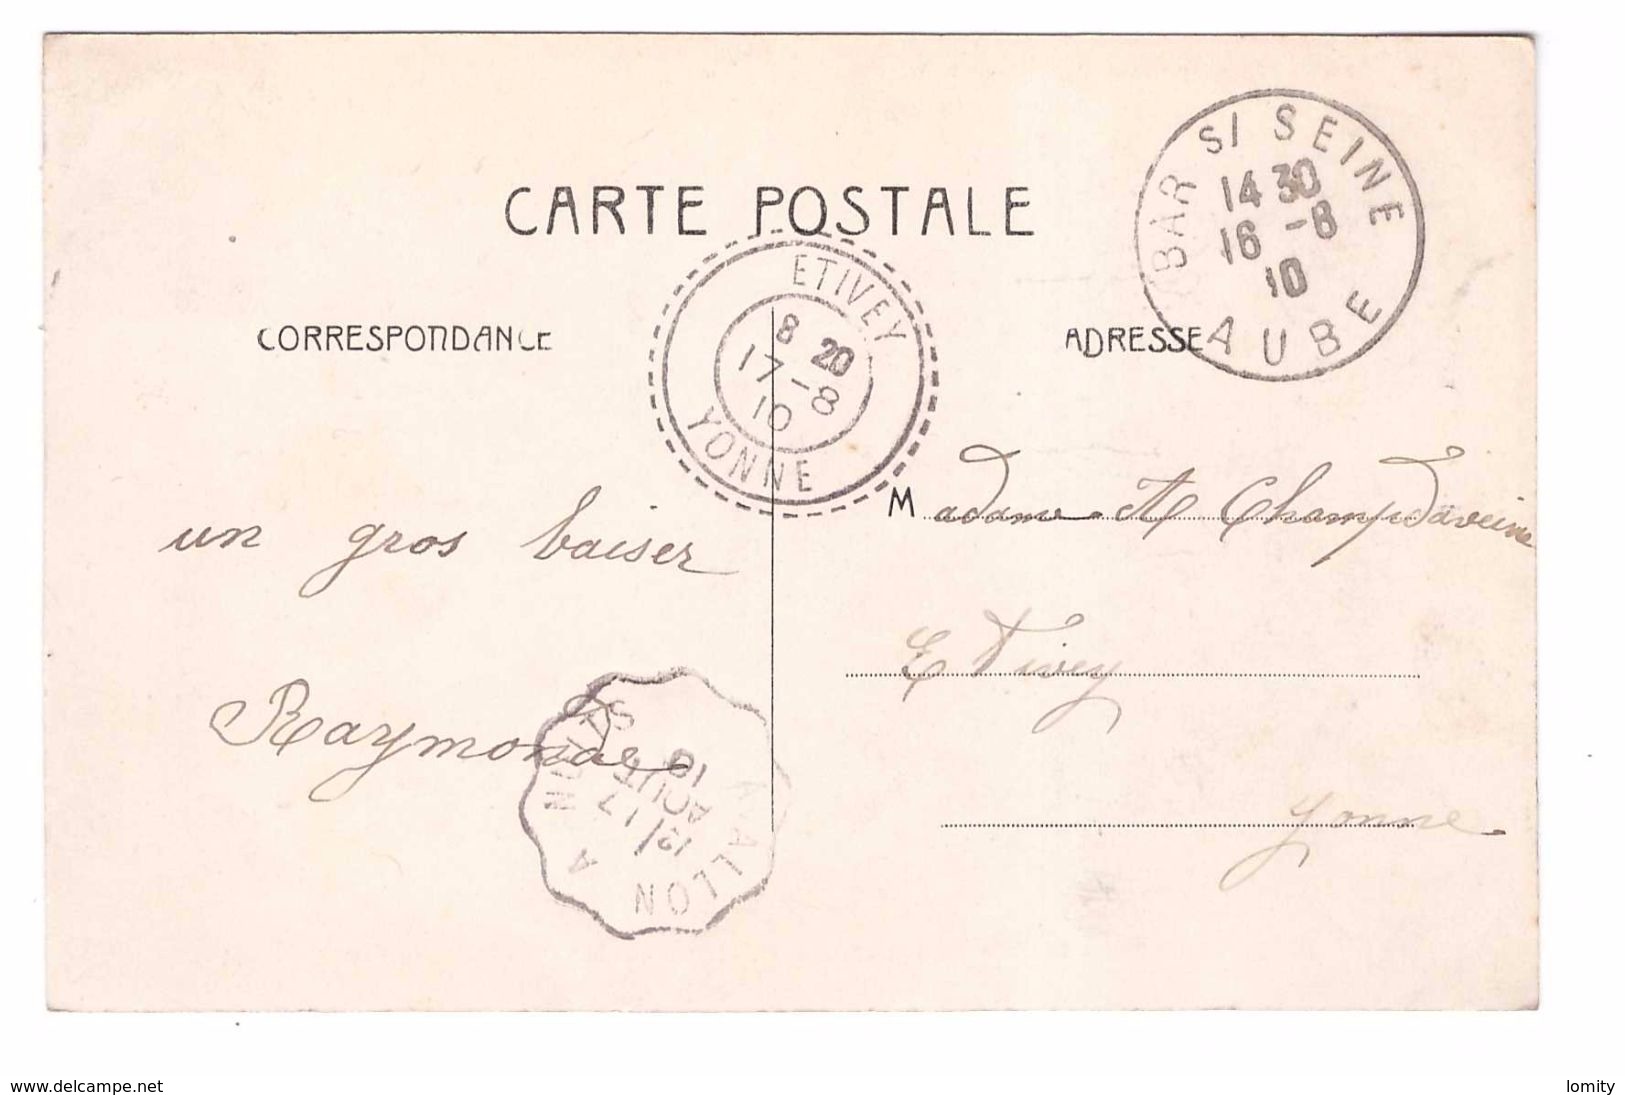 CARTE POSTALE
BAR S/ SEINE
14 30
16 -8
10
AUBE
ETIVEY
8 20
17 -8
10
YONNE
CORRESPONDANCE
ADRESSE
Madame A Champdaveine
un gros baiser
Etivey
Raymonde
Yonne
AVALLON A NUITS
12/17
AOUT
10
www.delcampe.net
lomity